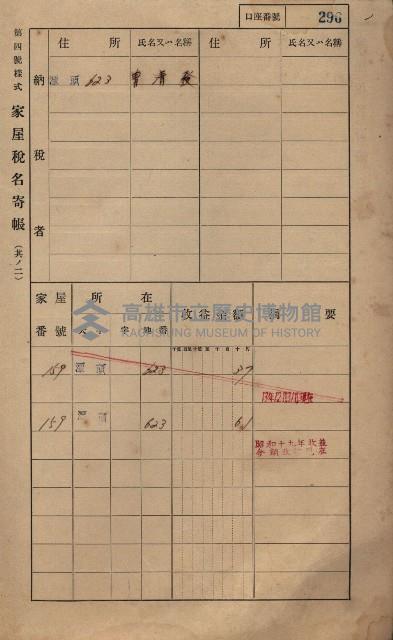 口座番號 296
第四號樣式 家屋稅名寄帳 (其ノ二)
納稅者
住所 氏名又ハ名稱 住所 氏名又ハ名稱
頭 623
家屋番號 所在 收益金額 摘要
高雄市立歷史博物館
KAOHSIUNG MUSEUM OF HISTORY
159 頭 623 37
159 頭 623 61
昭和十九年改益